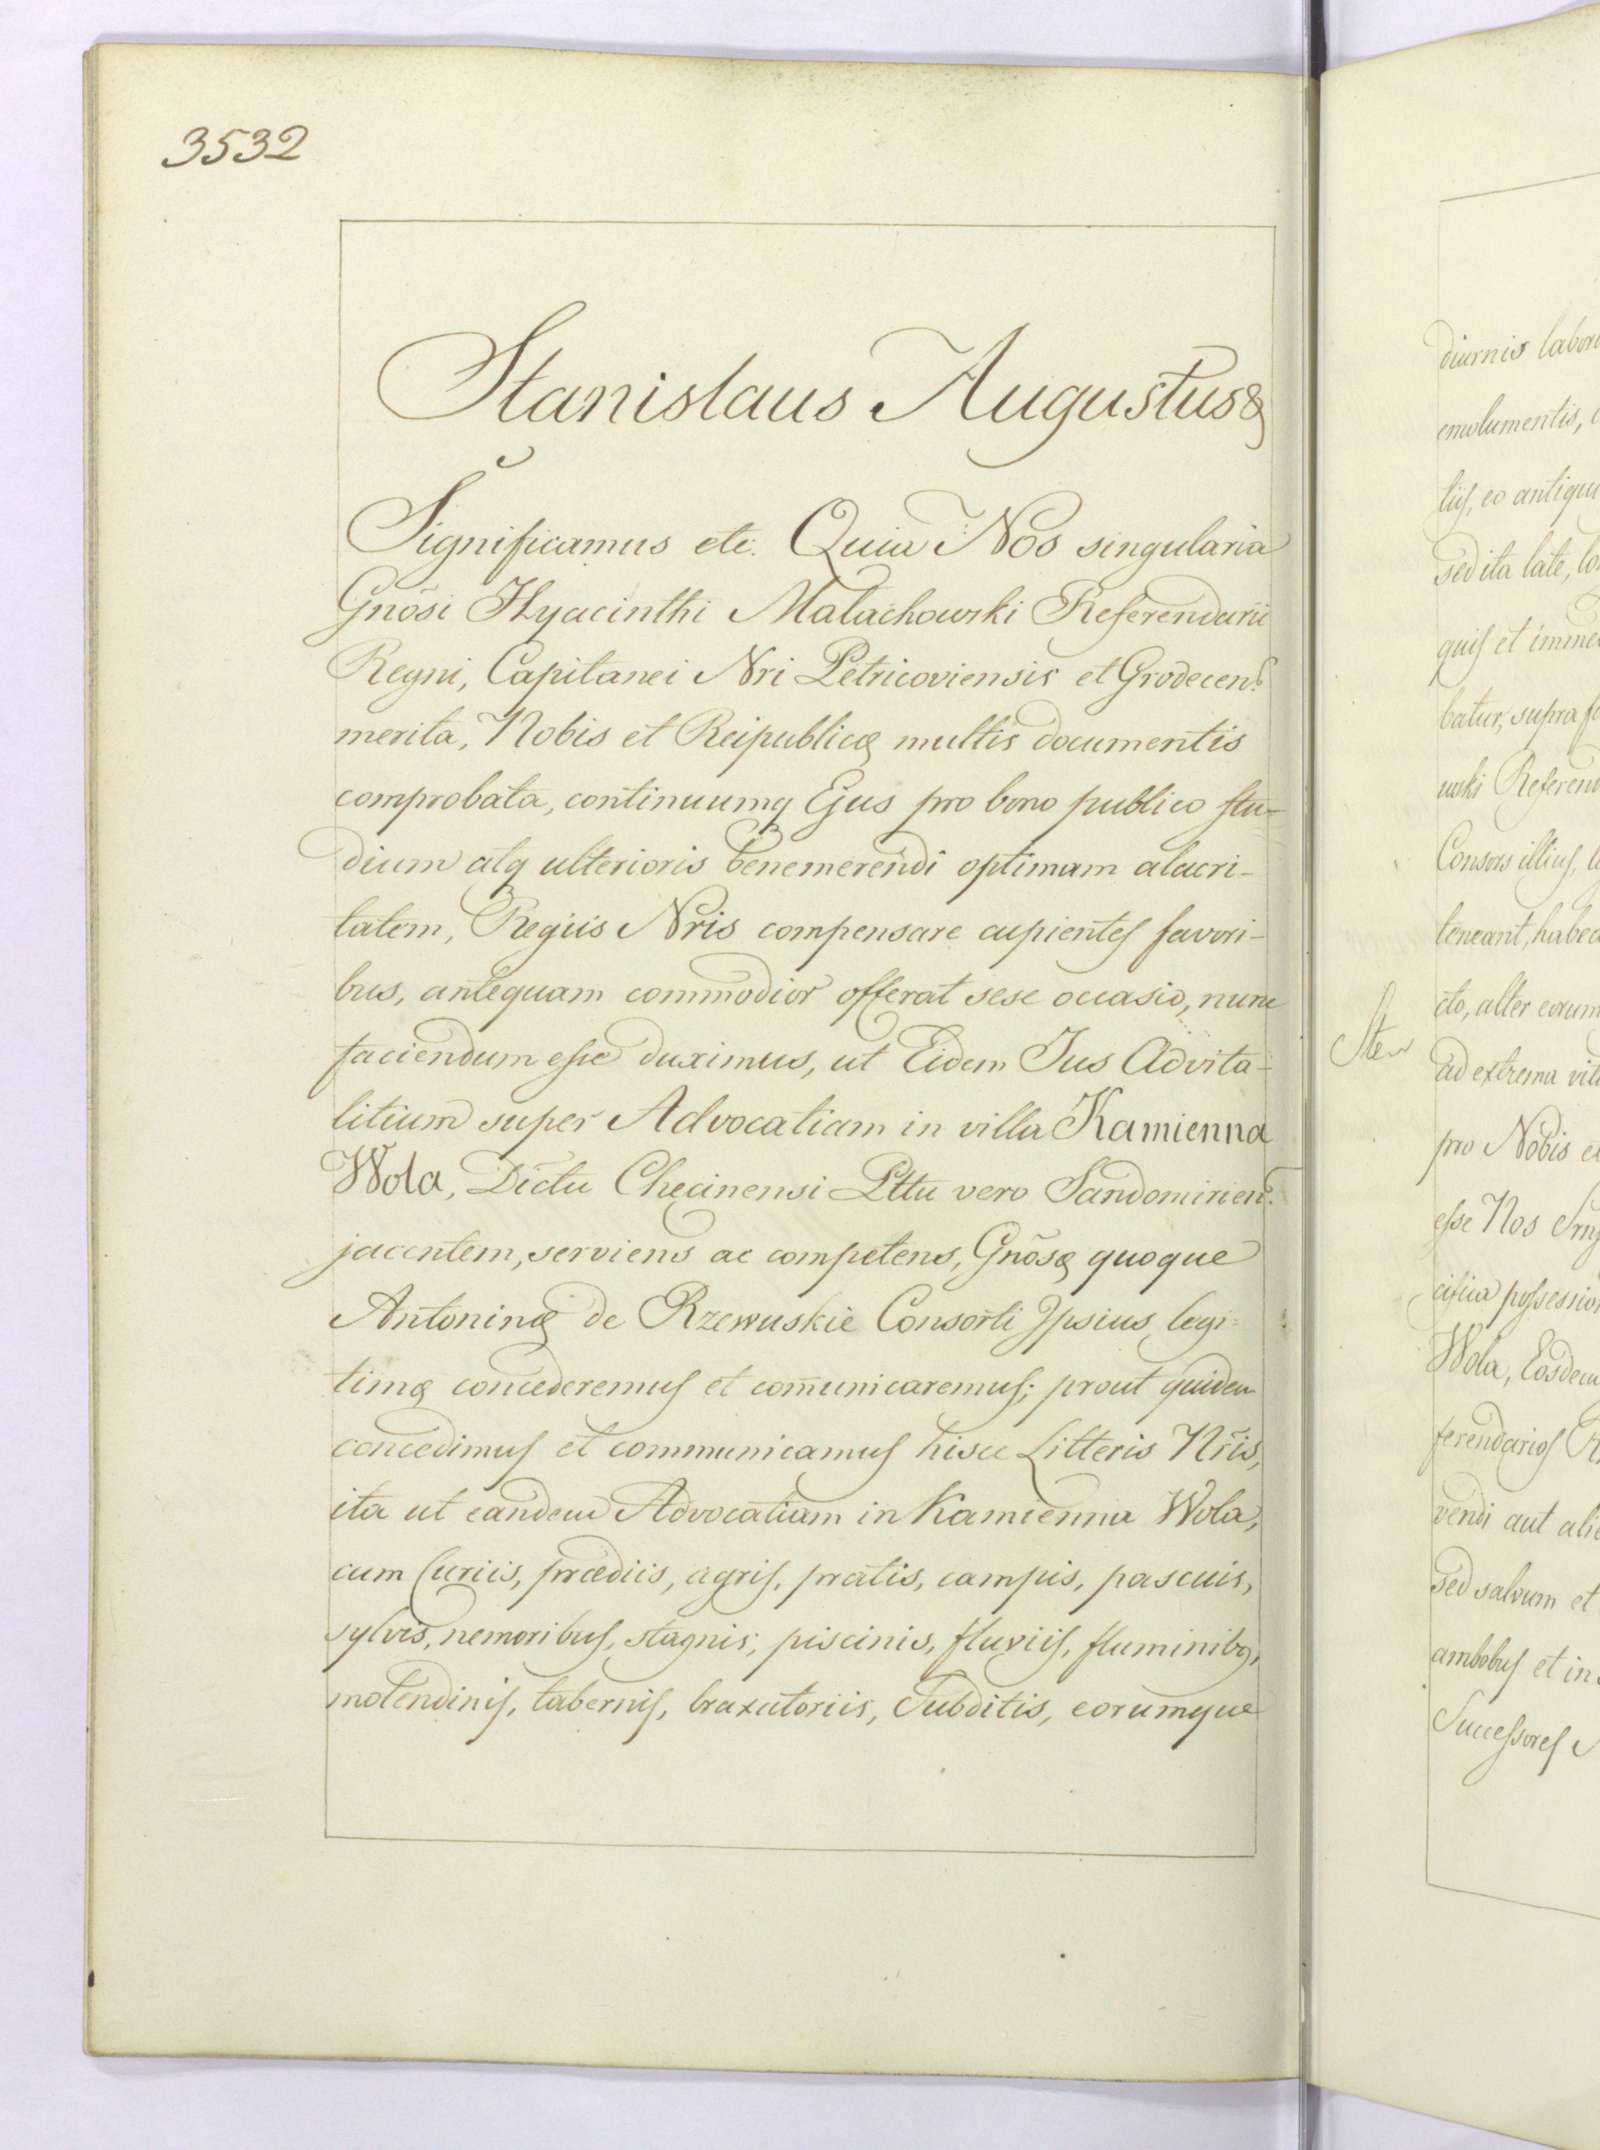 3532
Stanislaus Augustus &
Significamus etc. Quia Nos singularia
Gnõsi Hyacinthi Małachowski Referendarii
Regni, Capitanei Nri Petricoviensis et Grodecens.
merita, Nobis et Reipublicæ multis documentis
comprobata, continuumq Ejus pro bono publico stu-
dium atq ulterioris benemerendi optimam alacri-
tatem, Regiis Nris compensare cupientes favori-
bus, antequam commodior offerat sese occasio, nunc
faciendum esse duximus, ut Eidem Jus Advita-
litium super Advocatiam in villa Kamienna
Wola, Dictu Chęcinensi Pttu vero Sandomirien.
jacentem, serviens ac competens, Gnõsæ quoque
Antoninæ de Rzewuskie Consorti Ipsius legi-
timæ concederemus et com̄unicaremus; prout quidem
concedimus et communicamus hisce Litteris Nr̃is,
ita ut eandem Advocatiam in Kamienna Wola,
cum Curiis, prædiis, agris, pratis, campis, pascuis,
sylvis, nemoribus, stagnis, piscinis, fluviis, fluminibq,
molendinis, tabernis, braxatoriis, Subditis, eorumque
diurnis
emolumentis,
tiis, eo
sed ita late,
quis et
batur, supra
wski
Consors illius,
teneant,
cto, alter eorum
ad extrema
pro Nobis
esse Nos
cifica
Wola, Eosdem
ferendarios
vendi aut
sed salvum et
ambobus et in
Successores